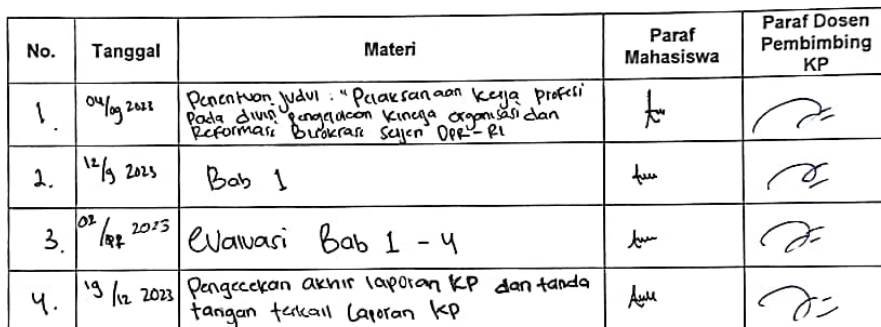 No. Tanggal Materi Paraf Mahasiswa Paraf Dosen Pembimbing KP
1. 04/09 2023 Penentuan judul : "Pelaksanaan kerja profesi
pada divisi pengelolaan kinerja organisasi dan
Reformasi Birokrasi Setjen DPR-RI
2. 12/9 2023 Bab 1
3. 02/ 2023 Evaluasi Bab 1 - 4
4. 19/12 2023 Pengecekan akhir laporan KP dan tanda
tangan terkait Laporan KP